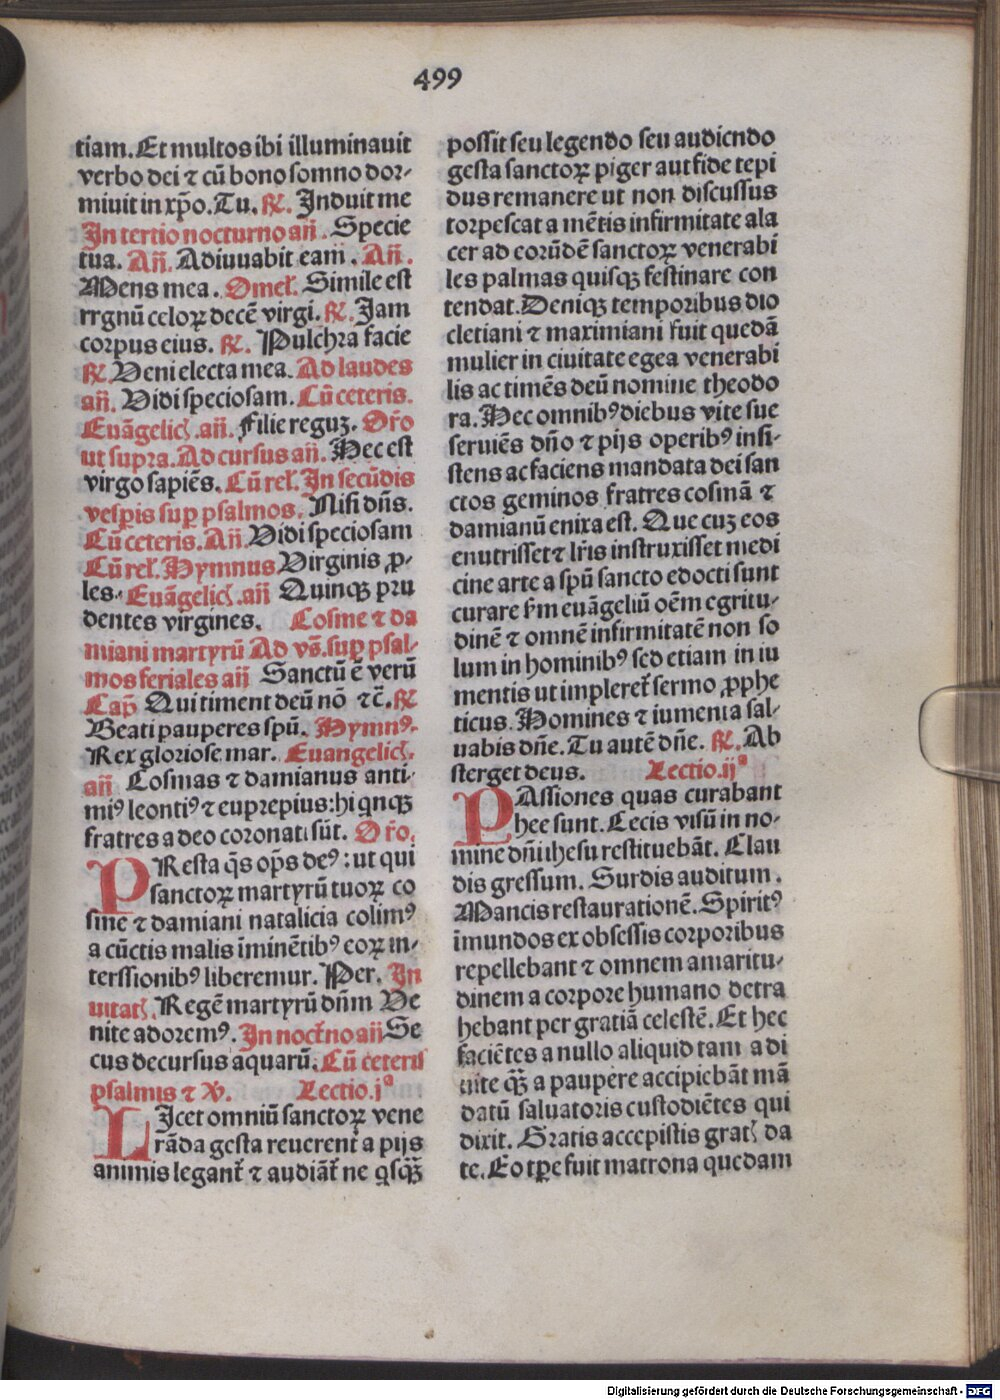 499
tiam. Et multos ibi illuminauit
verbo dei ⁊ cū bono somno dor-
miuit in xp̄o. Tu. ℟. Induit me
In tertio nocturno añ. Specie
tua. Añ. Adiuuabit eam. Añ.
Mens mea. Omeł. Simile est
rrgnū celoꝝ decē virgi. ℟. Jam
corpus eius. ℟. Pulchra facie
℟. Veni electa mea. Ad laudes
añ. Vidi speciosam. Cū ceteris.
Euāgelicꝭ. añ. Filie reguꝫ. Or̄o
ut supra. Ad cursus añ. Hec est
virgo sapiēs. Cū reł. In secūdis
vesꝑis suꝑ psalmos. Nisi dn̄s.
Cū ceteris. Añ. Vidi speciosam
Cū reł. Hymnus Virginis ꝓ-
les. Euāgelicꝭ. añ Quinqꝫ pru
dentes virgines. Cosme ⁊ da
miani martyrū Ad vs̄. suꝑ psal-
mos feriales añ Sanctū ē verū
Cap̄ Qui timent deū nō ⁊c̄. ℟
Beati pauperes spū. Hymnꝰ.
Rex gloriose mar. Euangelicꝭ.
añ Cosmas ⁊ damianus anti-
miꝰ leontiꝰ ⁊ euprepius: hi qnqꝫ
fratres a deo coronati sūt. Or̄o.
PResta q̄s op̄s deꝰ: ut qui
sanctoꝝ martyrū tuoꝝ co
sme ⁊ damiani natalicia colimꝰ
a cūctis malis īminētibꝰ eoꝝ in-
terssionibꝰ liberemur. Per. In
uitatꝭ. Regē martyrū dn̄m Ve
nite adoremꝰ. In noct̄no añ Se
cus decursus aquarū. Cū ceteris
psalmis ⁊ ℣. Lectio. jª
LIcet omniū sanctoꝝ vene
rāda gesta reuerent̄ a pijs
animis legant̄ ⁊ audiāt̄ ne qsqꝫ̄
possit seu legendo seu audiendo
gesta sanctoꝝ piger aut fide tepi
dus remanere ut non discussus
torpescat a mētis infirmitate ala
cer ad eorūdē sanctoꝝ venerabi
les palmas quisqꝫ festinare con
tendat. Deniqꝫ temporibus dio
cletiani ⁊ maximiani fuit quedā
mulier in ciuitate egea venerabi
lis ac timēs deū nomine theodo
ra. Hec omnibꝰ diebus vite sue
seruiēs dn̄o ⁊ pijs operibꝰ insi-
stens ac faciens mandata dei san
ctos geminos fratres cosmā ⁊
damianū enixa est. Que cuꝫ eos
enutrisset ⁊ lr̄is instruxisset medi
cine arte a spū sancto edocti sunt
curare fm euāgeliū oēm egritu-
dinē ⁊ omnē infirmitatē non so
lum in hominibꝰ sed etiam in iu
mentis ut impleret̄ sermo ꝓphe
ticus. Homines ⁊ iumenta sal-
uabis dn̄e. Tu autē dn̄e. ℟. Ab
sterget deus. Lectio. ijª
PAssiones quas curabant
hee sunt. Cecis visū in no-
mine dn̄i ihesu restituebāt. Clau
dis gressum. Surdis auditum.
Mancis restaurationē. Spiritꝰ
īmundos ex obsessis corporibus
repellebant ⁊ omnem amaritu-
dinem a corpore humano detra
hebant per gratiā celestē. Et hec
faciētes a nullo aliquid tam a di
uite qꝫ̄ a paupere accipiebāt mā
datū saluatoris custodiētes qui
dixit. Gratis accepistis gratꝭ da
te. Eo tꝑe fuit matrona quedam
Digitalisierung gefördert durch die Deutsche Forschungsgemeinschaft - DFG